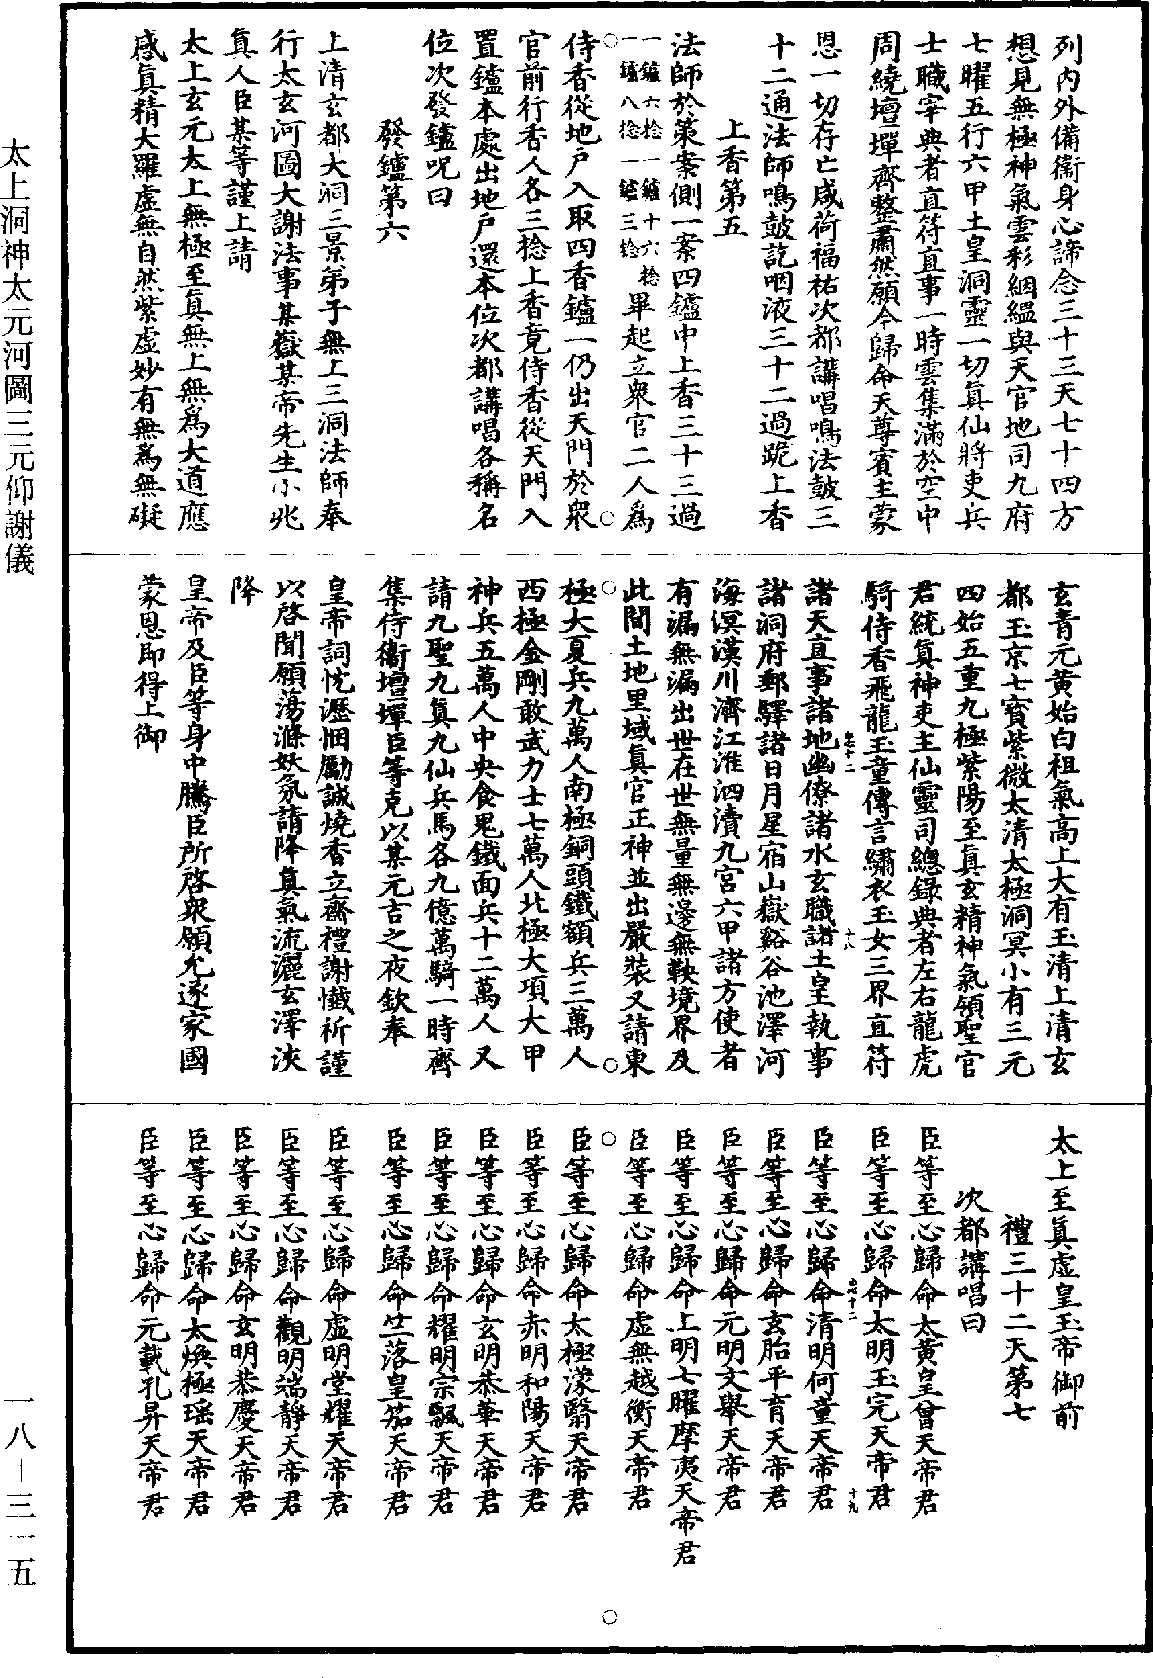 列內外備衞身心諦念三十三天七十四方
想見無極神氣雲彩絪縕與天官地司九府
七曜五行六甲土皇洞靈一切眞仙將吏兵
士職宰典者直符直事一時雲集滿於空中
周繞壇墠齊整肅然願令歸命天尊賓主蒙
恩一切存亡咸荷福祐次都講唱鳴法鼓三
十二通法師鳴鼓訖咽液三十二過跪上香
上香第五
法師於策案側一案四鑪中上香三十三過
一鑪六捻一鑪十六捻
一鑪八捻一鑪三捻
畢起立衆官二人爲
侍香從地戶入取四香鑪一仍出天門於衆
官前行香人各三捻上香竟侍香從天門入
置鑪本處出地戶還本位次都講唱各稱名
位次發鑪呪曰
發鑪第六
上清玄都大洞三景弟子無上三洞法師奉
行太玄河圖大謝法事某嶽某帝先生小兆
眞人臣某等謹上請
太上玄元太上無極至眞無上無爲大道應
感眞精大羅虛無自然紫虛妙有無爲無礙
玄青元黃始白祖氣高上大有玉清上清玄
都玉京七寶紫微太清太極洞冥小有三元
四始五重九極紫陽至眞玄精神氣領聖官
君統眞神吏主仙靈司總錄典者左右龍虎
騎侍香飛龍玉童傳言繡衣玉女三界直符
諸天直事諸地幽僚諸水玄職諸土皇執事
諸洞府郵驛諸日月星宿山嶽谿谷池澤河
海溟漢川濟江淮泗瀆九宮六甲諸方使者
有漏無漏出世在世無量無邊無鞅境界及
此間土地里域眞官正神並出嚴裝又請東
極大夏兵九萬人南極銅頭鐵額兵三萬人
西極金剛敢武力士七萬人北極大項大甲
神兵五萬人中央食鬼鐵面兵十二萬人又
請九聖九眞九仙兵馬各九億萬騎一時齊
集侍衞壇墠臣等克以某元吉之夜欽奉
皇帝詞忱瀝悃勵誠燒香立齋禮謝懴祈謹
以啓聞願蕩滌妖氛請降眞氣流灑玄澤浹
降
皇帝及臣等身中騰臣所啓衆願允遂家國
蒙恩即得上御
太上至眞虛皇玉帝御前
禮三十二天第七
次都講唱曰
臣等至心歸命太黃皇曾天帝君
臣等至心歸命太明玉完天帝君
臣等至心歸命清明何童天帝君
臣等至心歸命玄胎平育天帝君
臣等至心歸命元明文舉天帝君
臣等至心歸命上明七曜摩夷天帝君
臣等至心歸命虛無越衡天帝君
臣等至心歸命太極濛翳天帝君
臣等至心歸命赤明和陽天帝君
臣等至心歸命玄明恭華天帝君
臣等至心歸命耀明宗飄天帝君
臣等至心歸命竺落皇笳天帝君
臣等至心歸命虛明堂耀天帝君
臣等至心歸命觀明端靜天帝君
臣等至心歸命玄明恭慶天帝君
臣等至心歸命太煥極瑶天帝君
臣等至心歸命元載孔昇天帝君
太上洞神太元河圖三元仰謝儀
一八—三一五